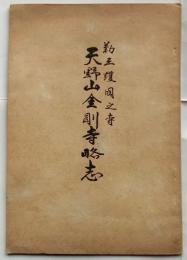 勤王護國之寺
天野山金剛寺略志